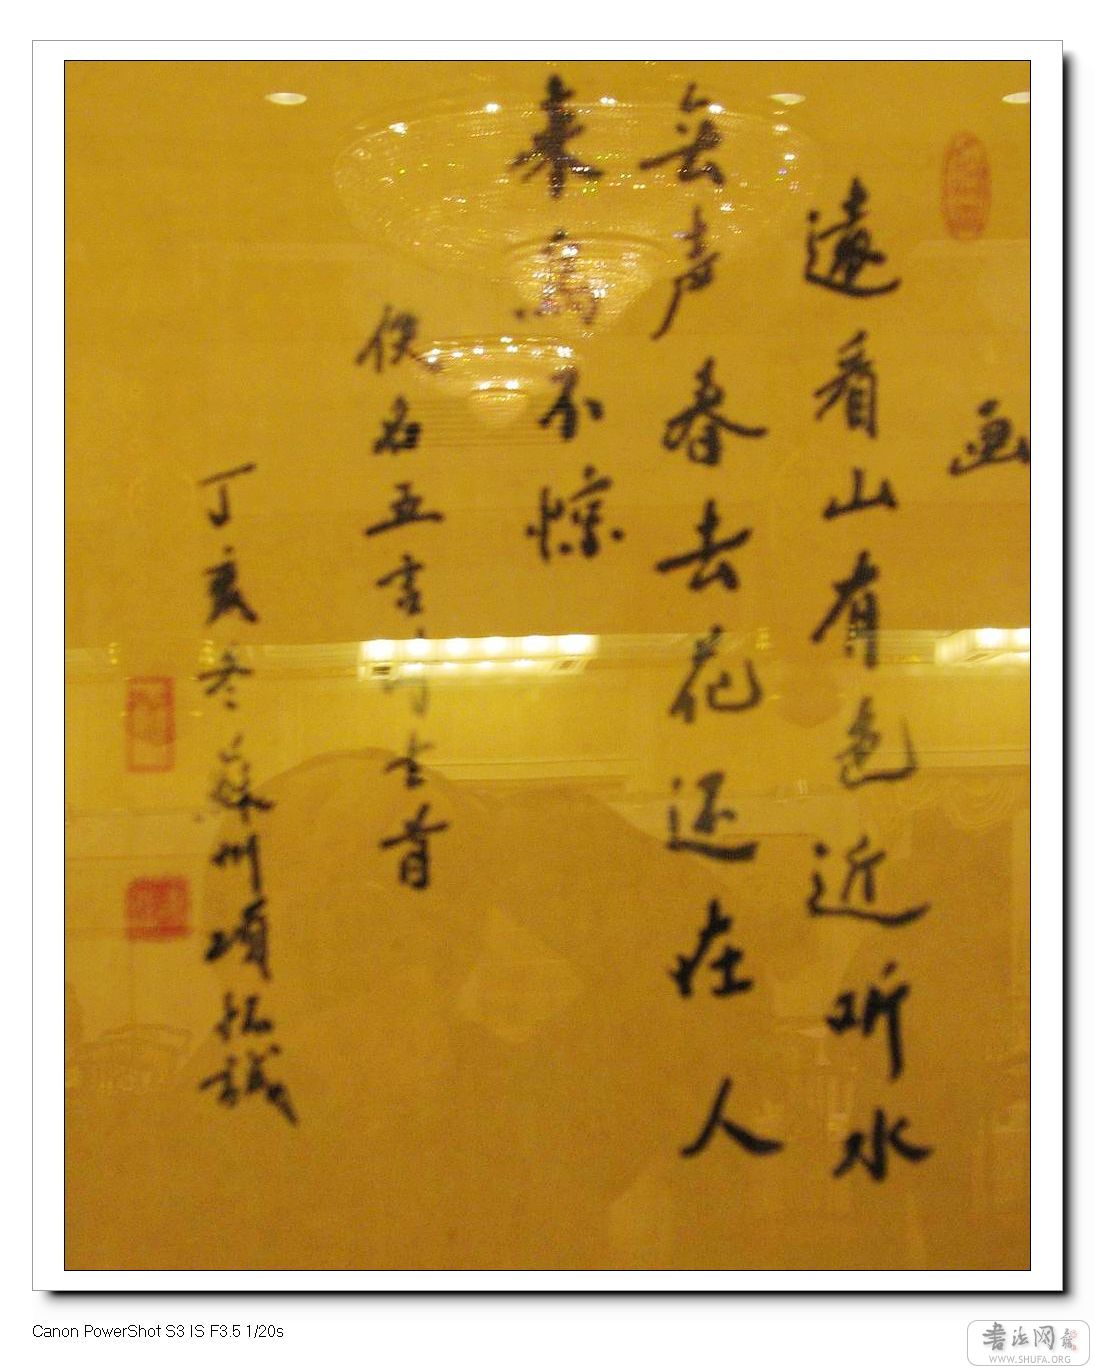 画
遠看山有色近听水
无声春去花还在人
来鳥不惊
佚名五言诗一首
丁亥冬蘇州項拓識
Canon PowerShot S3 IS F3.5 1/20s
書法网
WWW.SHUFA.ORG